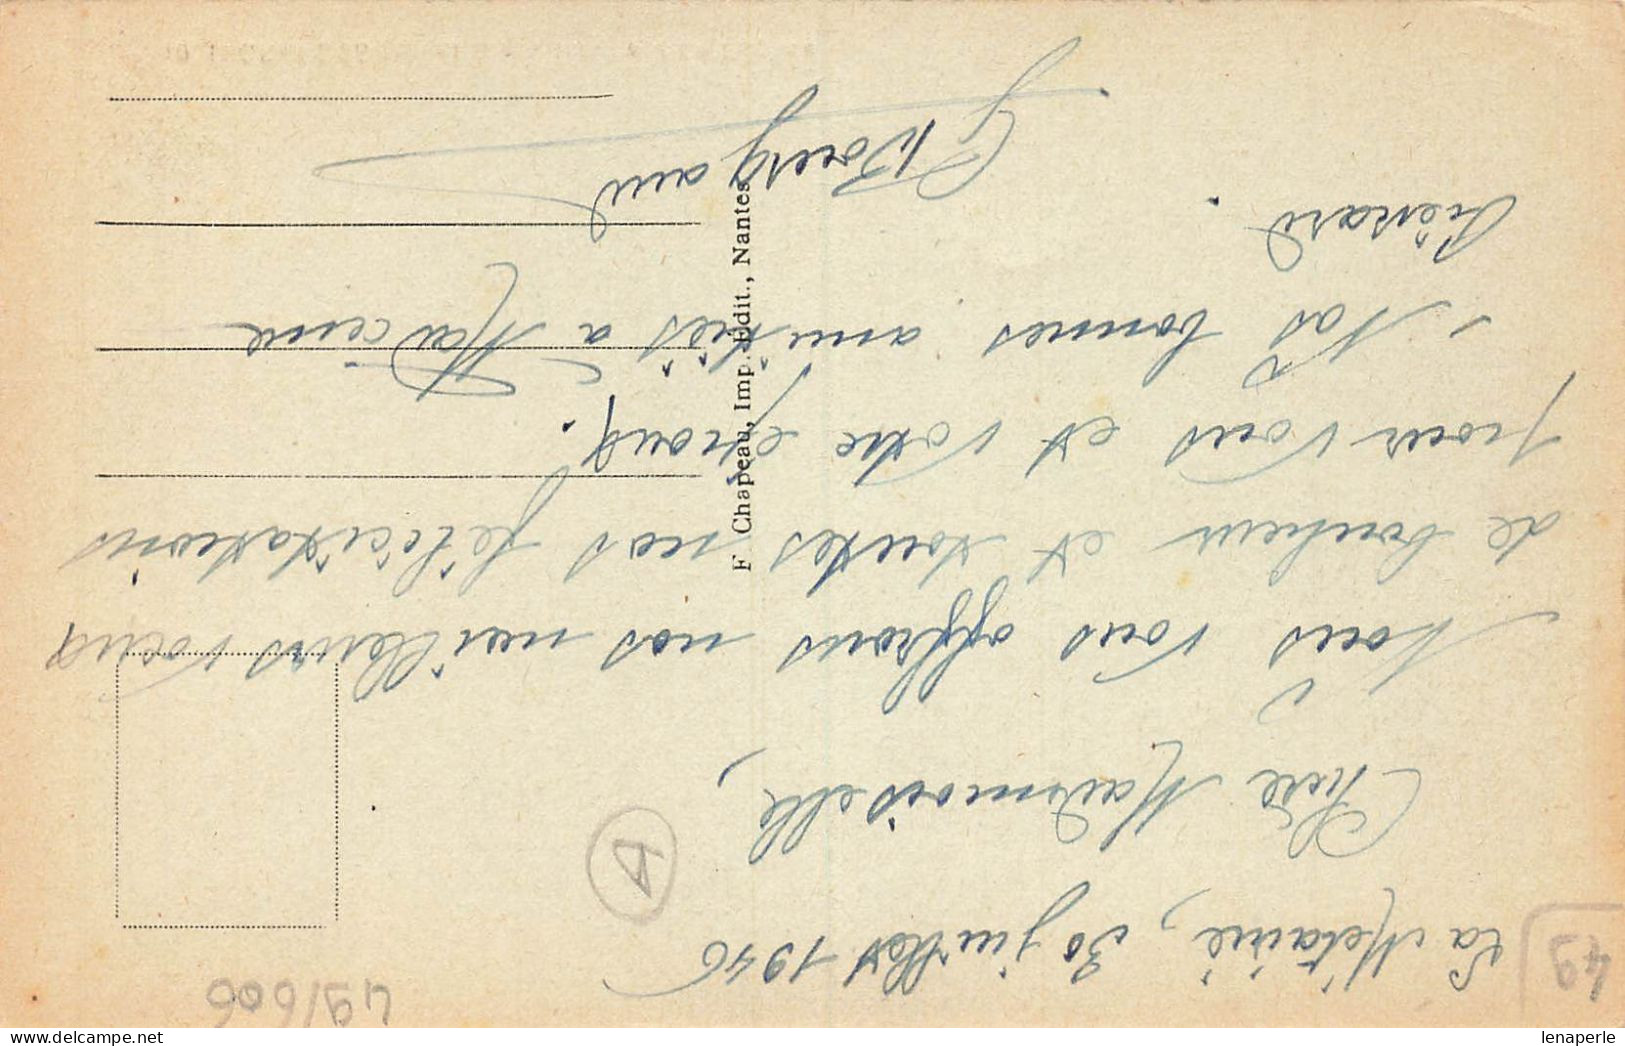 La Métairie, 30 juillet 1946
Chère Mademoiselle,
Nous vous offrons nos meilleurs voeux
de bonheur et toutes nos félicitations
pour vous et votre époux.
Nos bonnes amitiés à Madame
F Chapeau, Imp. Edit., Nantes
49
49/606
A
lenaperle